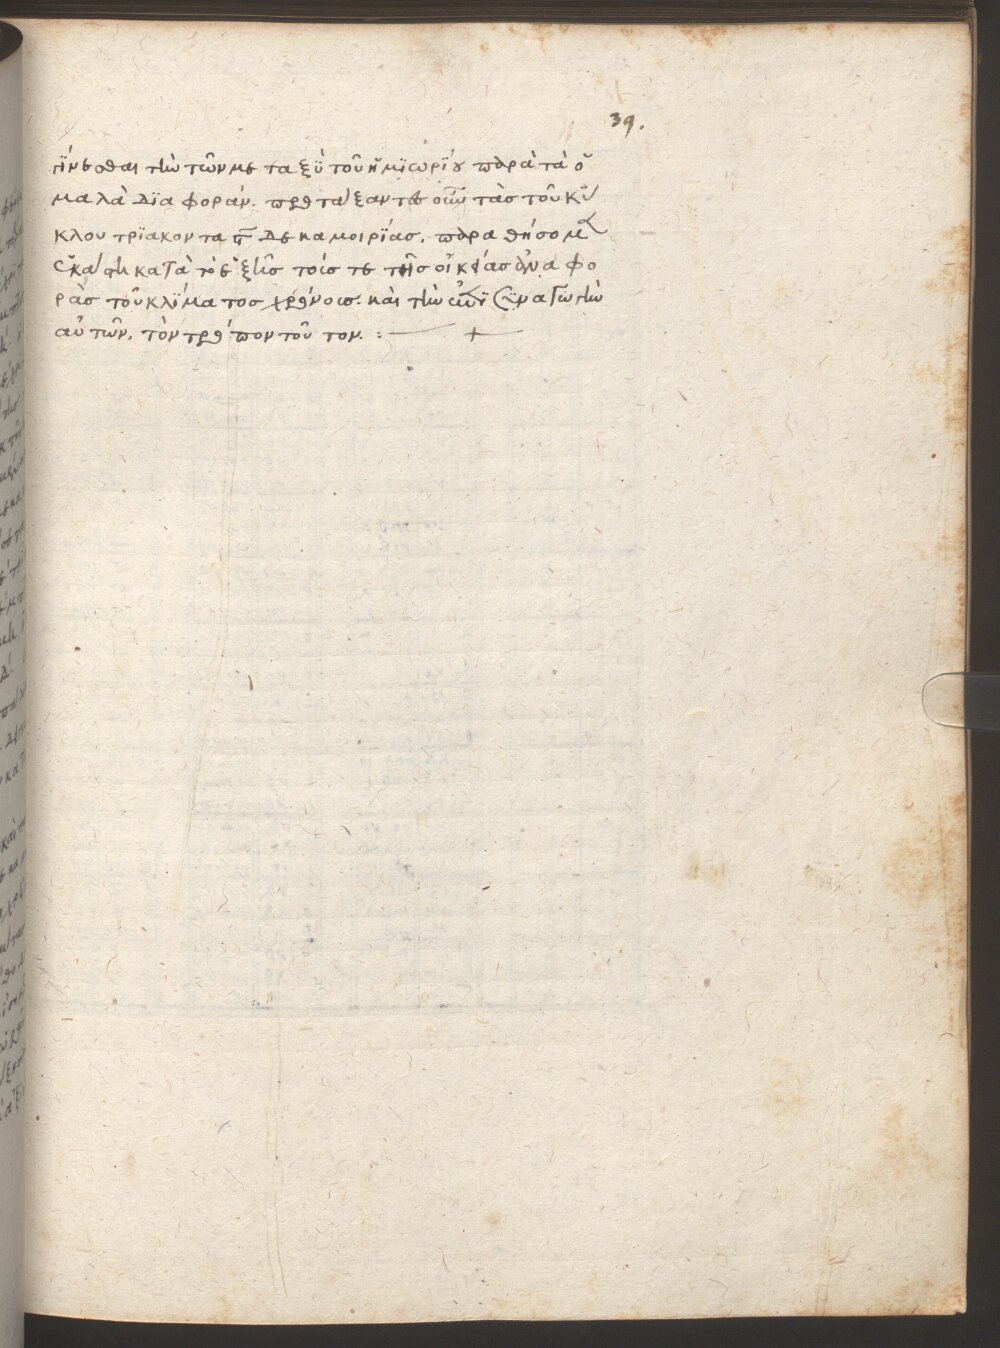 39.
γίνεσθαι τὴν τῶν μεταξὺ τοῦ ἡμϊωρίου παρὰ τὰ ὁ
μαλὰ δϊαφοράν. προτάξαντες οὖν τὰς τοῦ κύ
κλου τρϊάκοντα ϛ̄ δεκαμοιρίας. παραθήσομεν
ἑκάστη κατὰ τὸ ἑξῆς τοῖς τε τῆς οἰκείας ἀναφο
ρὰς τοῦ κλίματος χρόνοις. καὶ τὴν ἐπϊσυναγωγὴν
αὐτῶν, τὸν τρόπον τοῦτον. :— +